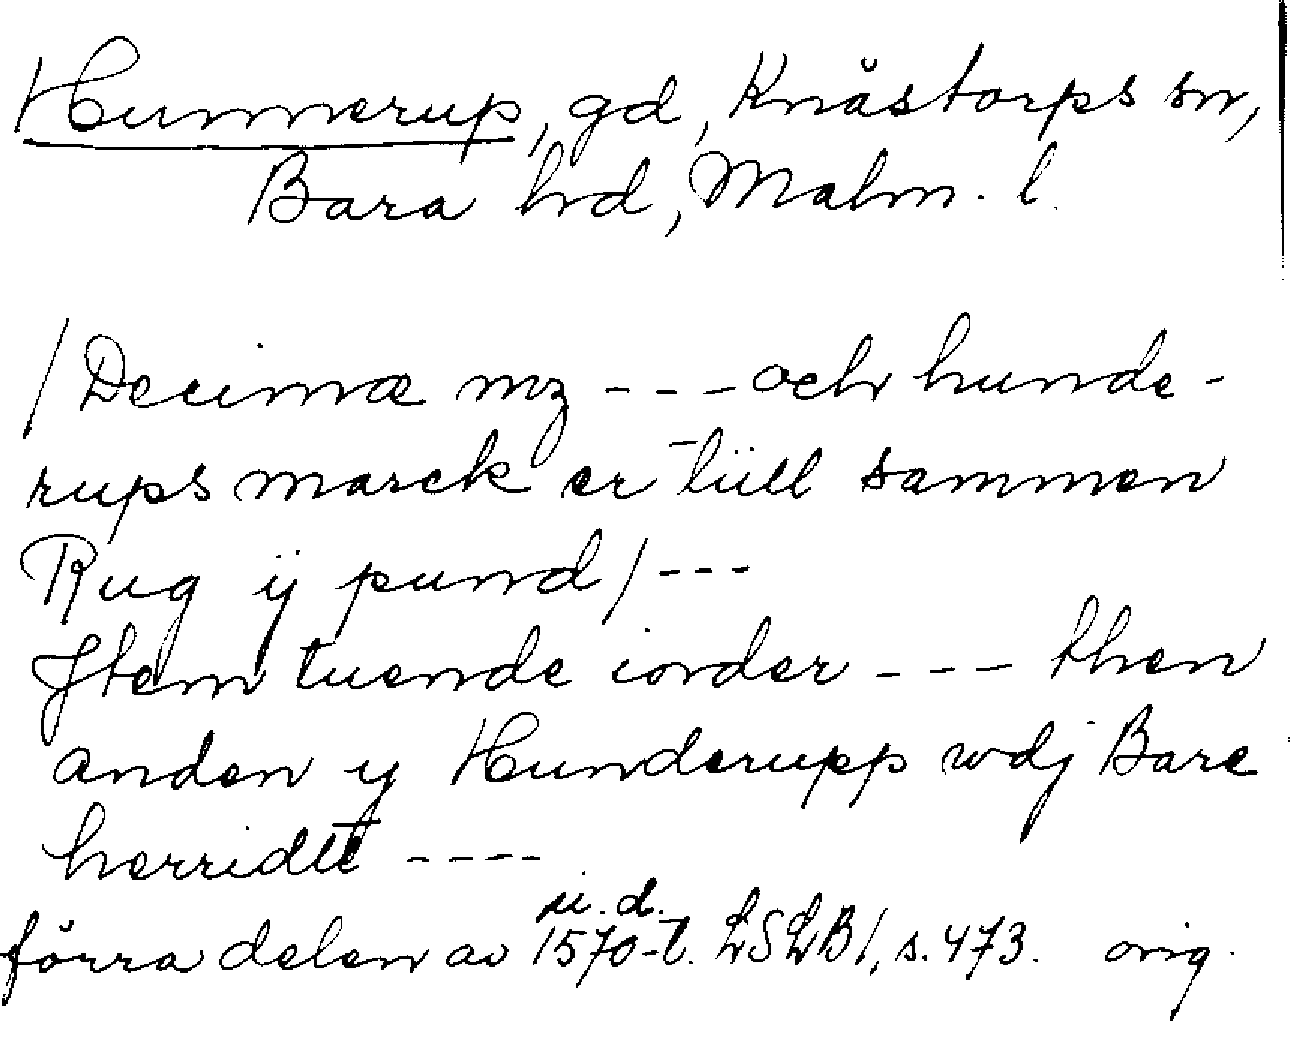 Hunnerup, gd, Knästorps sn,
Bara hd, Malm. l.
/Decimæ mz --- och hunde-
rups marck er tiill sammen
Rug ij pund/---
Jtem tuende iorder --- then
anden y Hunderupp wdj Bare
herridtt ----
u.d.
förra delen av 1570-t. LSLB 1, s. 473. orig.